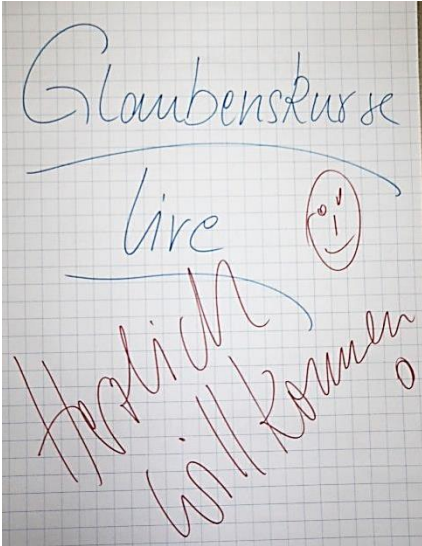 Glaubenskurse
live
Herzlich
Willkommen!